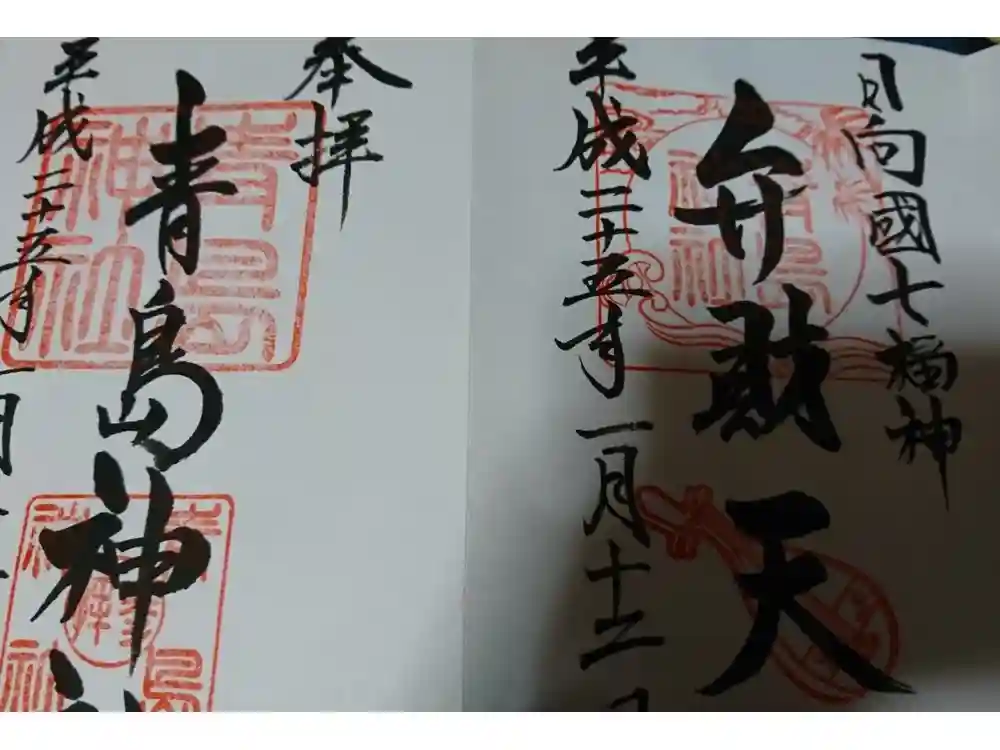 日向國七福神
弁財天
平成二十五年一月十二日
奉拝
青島神社
平成二十五年一月
青島神社
青島神社